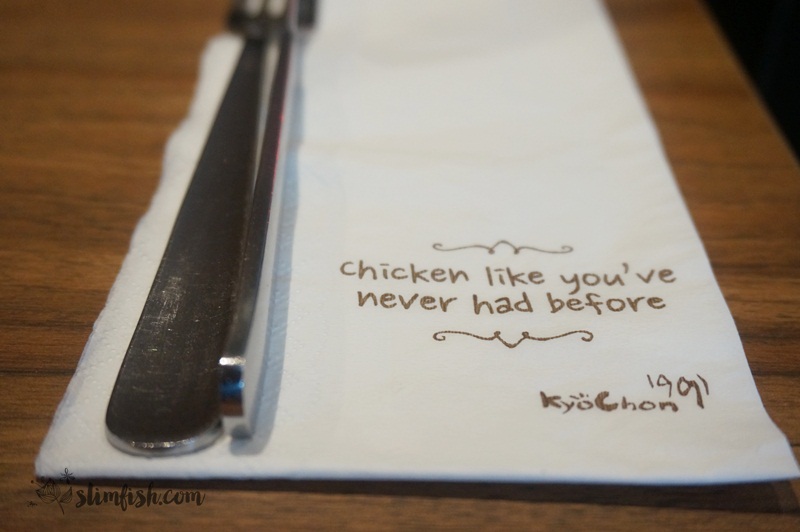 chicken like you've
never had before
KyoChon 1991
slimfish.com